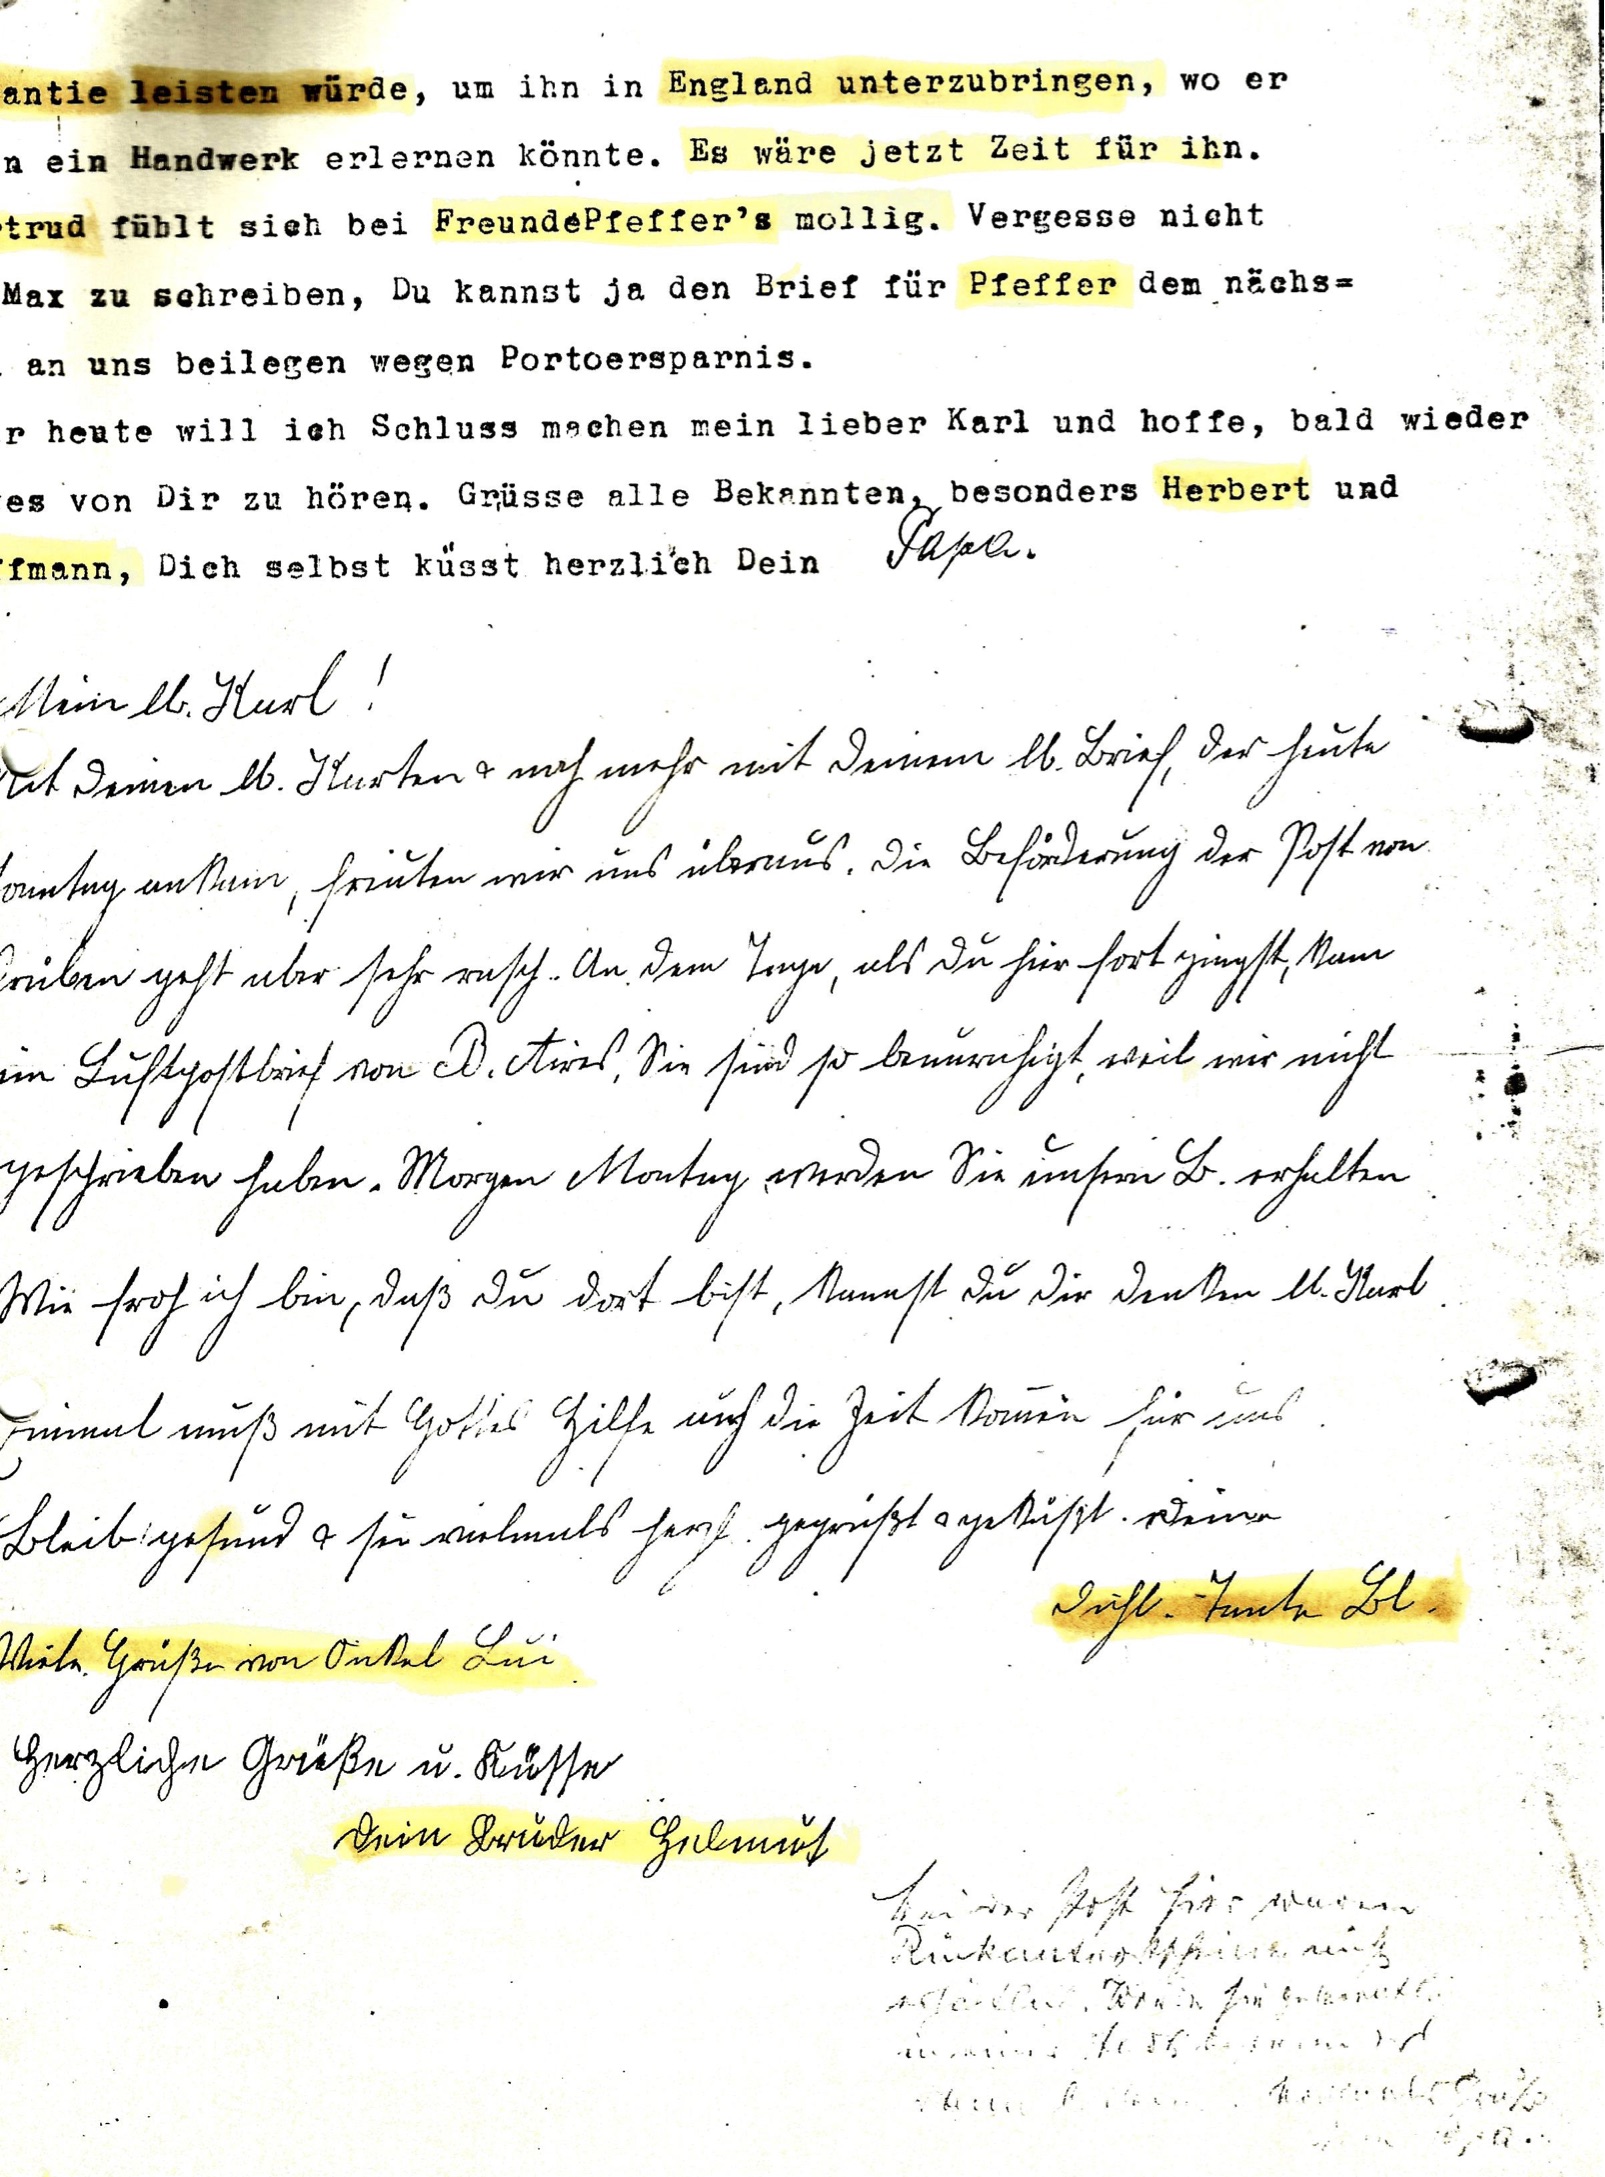 antie leisten würde, um ihn in England unterzubringen, wo er
n ein Handwerk erlernen könnte. Es wäre jetzt Zeit für ihn.
rtrud fühlt sich bei FreundePfeffer's mollig. Vergesse nicht
Max zu schreiben, Du kannst ja den Brief für Pfeffer dem nächs=
an uns beilegen wegen Portoersparnis.
r heute will ich Schluss machen mein lieber Karl und hoffe, bald wieder
es von Dir zu hören. Grüsse alle Bekannten, besonders Herbert und
ffmann, Dich selbst küsst herzlich Dein Papa.
Mein lb. Karl!
Mit Deinen lb. Karten & noch mehr mit Deinem lb. Brief, der heute
Sonntag ankam, freuten wir uns überaus. Die Beförderung der Post von
drüben geht aber sehr rasch. An dem Tage, als Du hier fort gingst, kam
ein Luftpostbrief von B. Aires, Sie sind so beunruhigt, weil wir nicht
geschrieben haben. Morgen Montag werden Sie unsern B. erhalten
Wie froh ich bin, daß Du dort bist, kannst Du Dir denken lb. Karl
Einmal muß mit Gottes Hilfe auch die Zeit kom̄en für uns.
Bleib gesund & sei vielmals herzl. gegrüßt & geküßt. Deine
Dichl. Tante Bl.
Viele Grüße von Onkel Lui
Herzliche Grüße u. Küsse
Dein Bruder Helmut
Bei der Post hier waren
Rückantwortscheine nicht